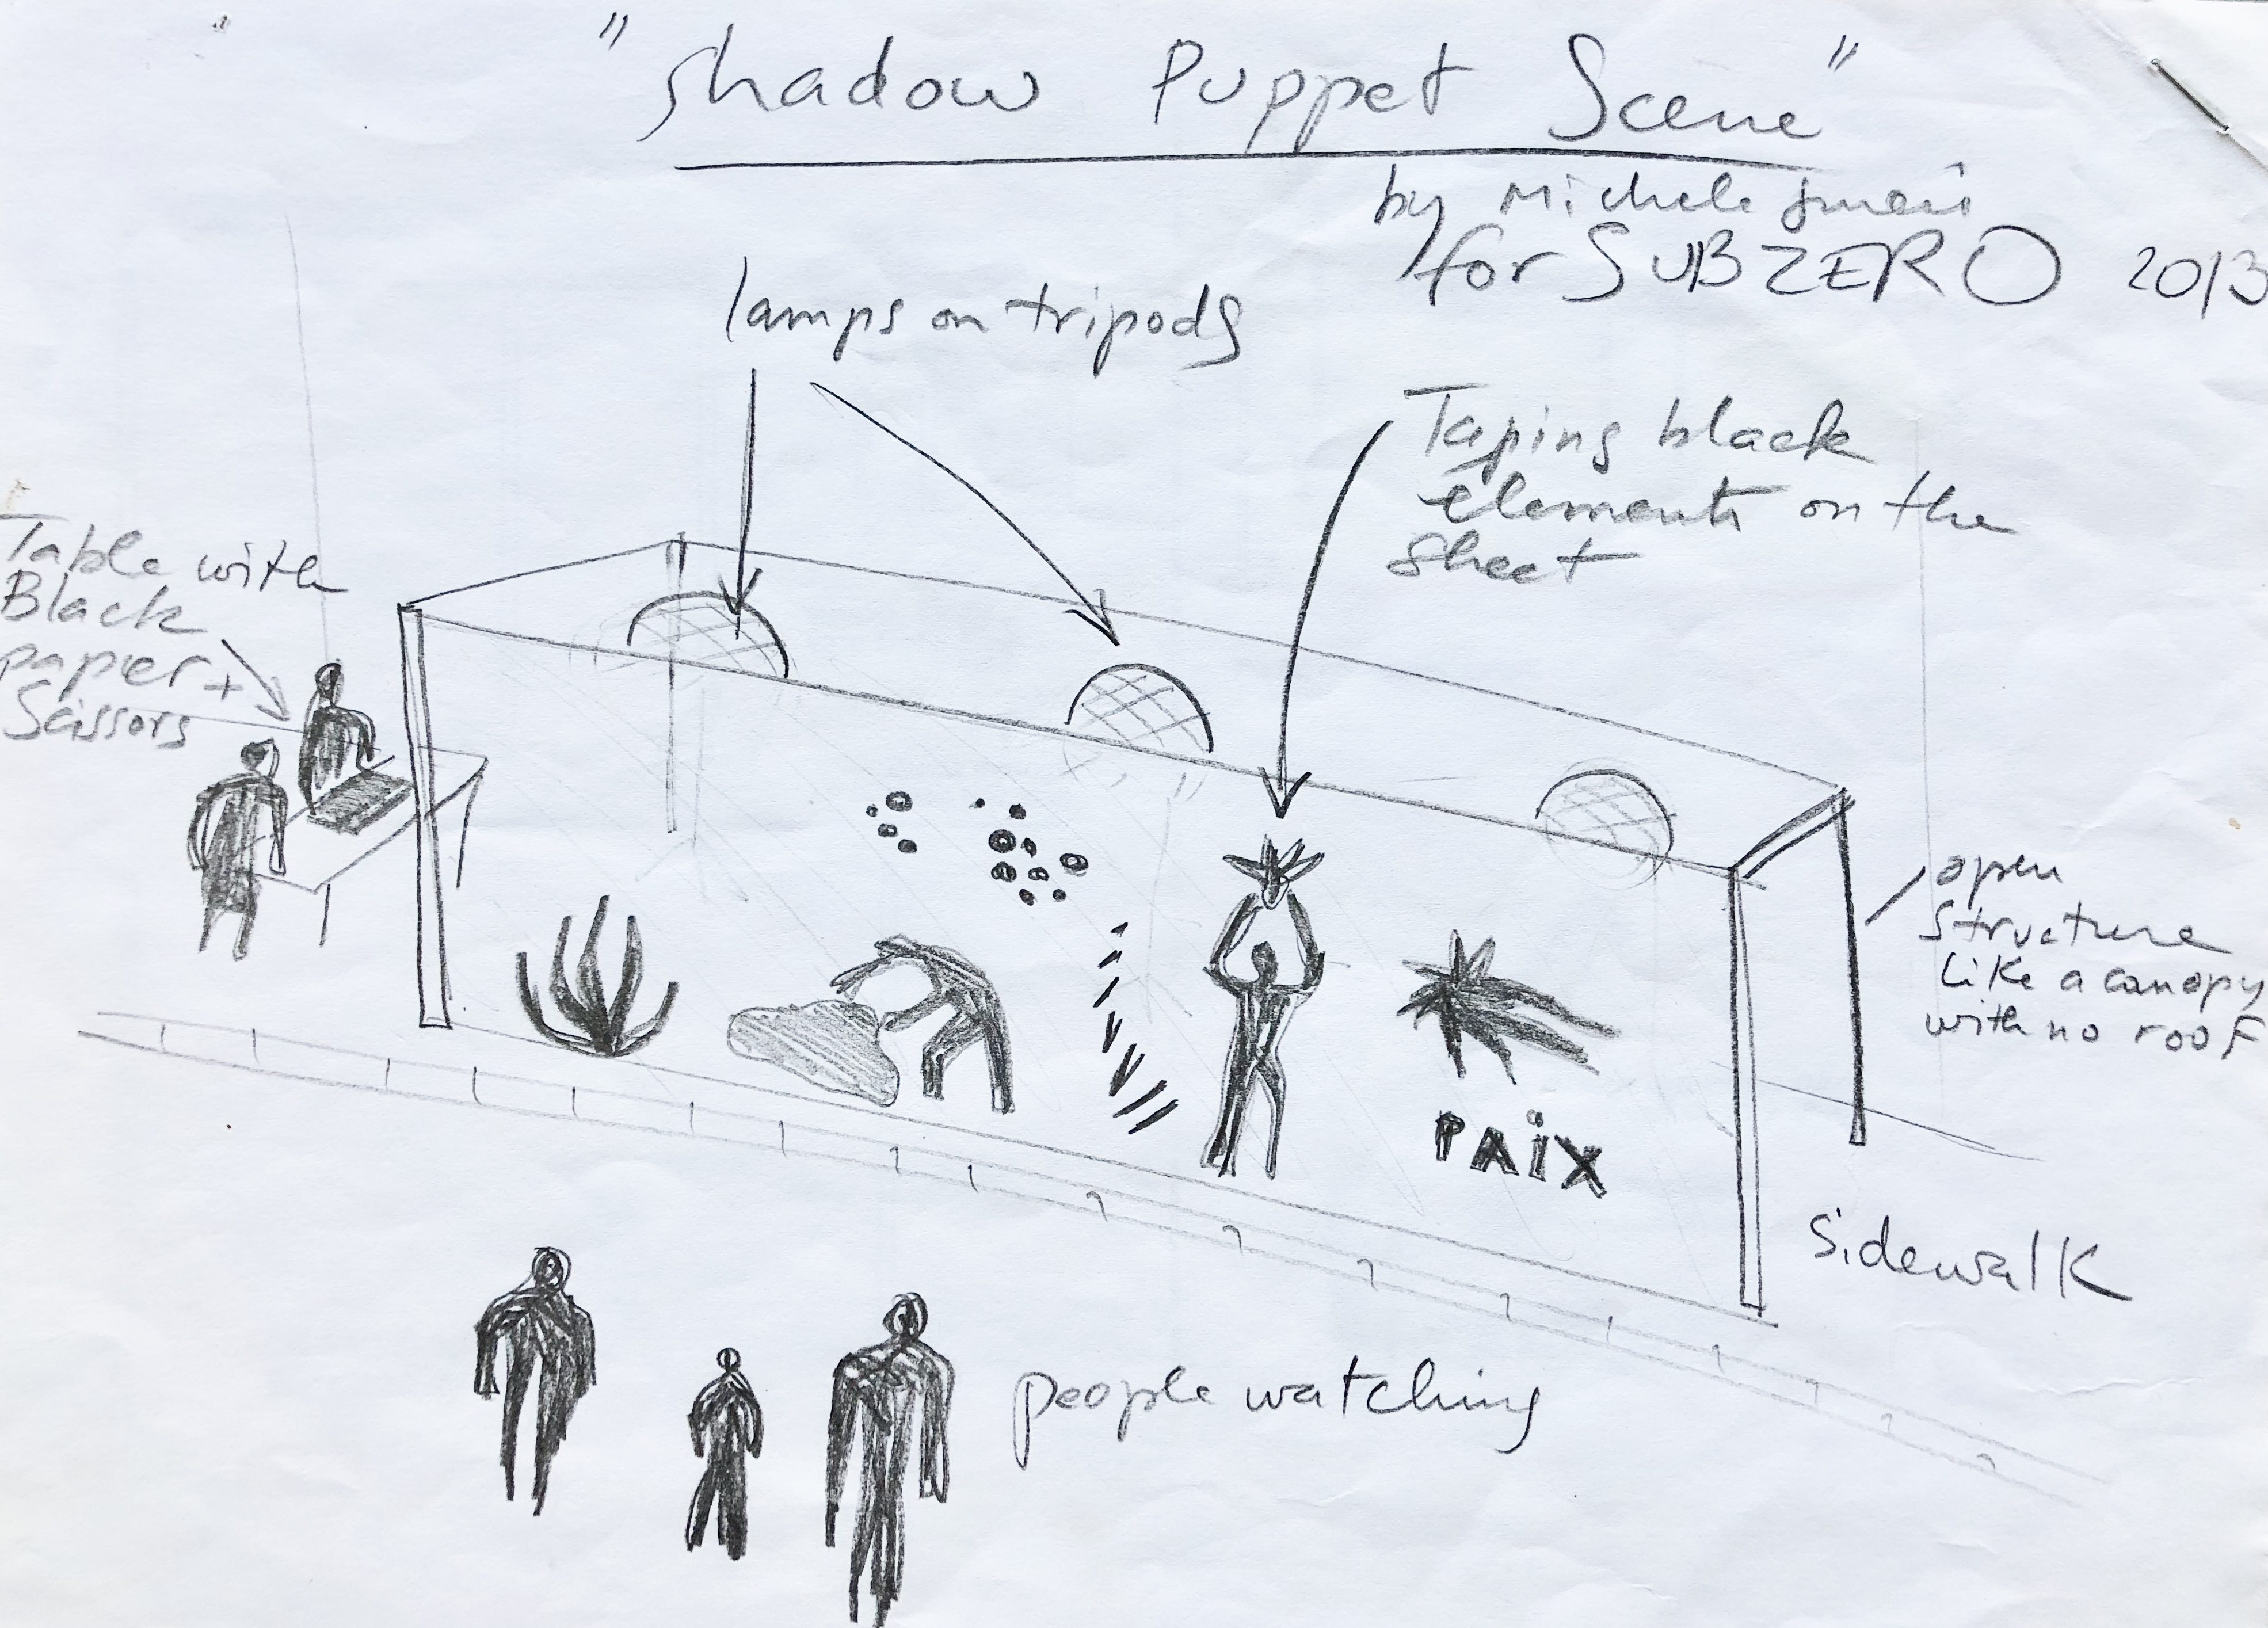 "Shadow Puppet Scene"
by Michele
for SUBZERO 2013
lamps on tripods
Taping black
elements on the
sheet
Table with
Black
paper +
Scissors
open
structure
like a canopy
with no roof
PAiX
Sidewalk
people watching